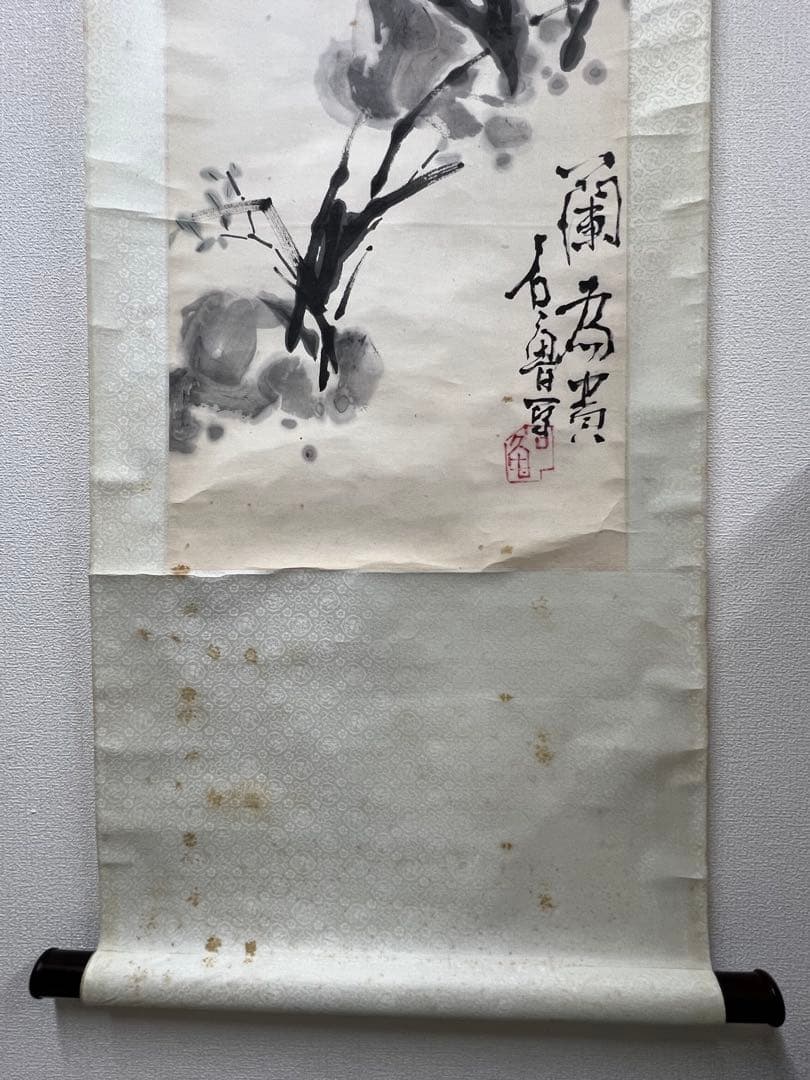 蘭為貴
石魯写